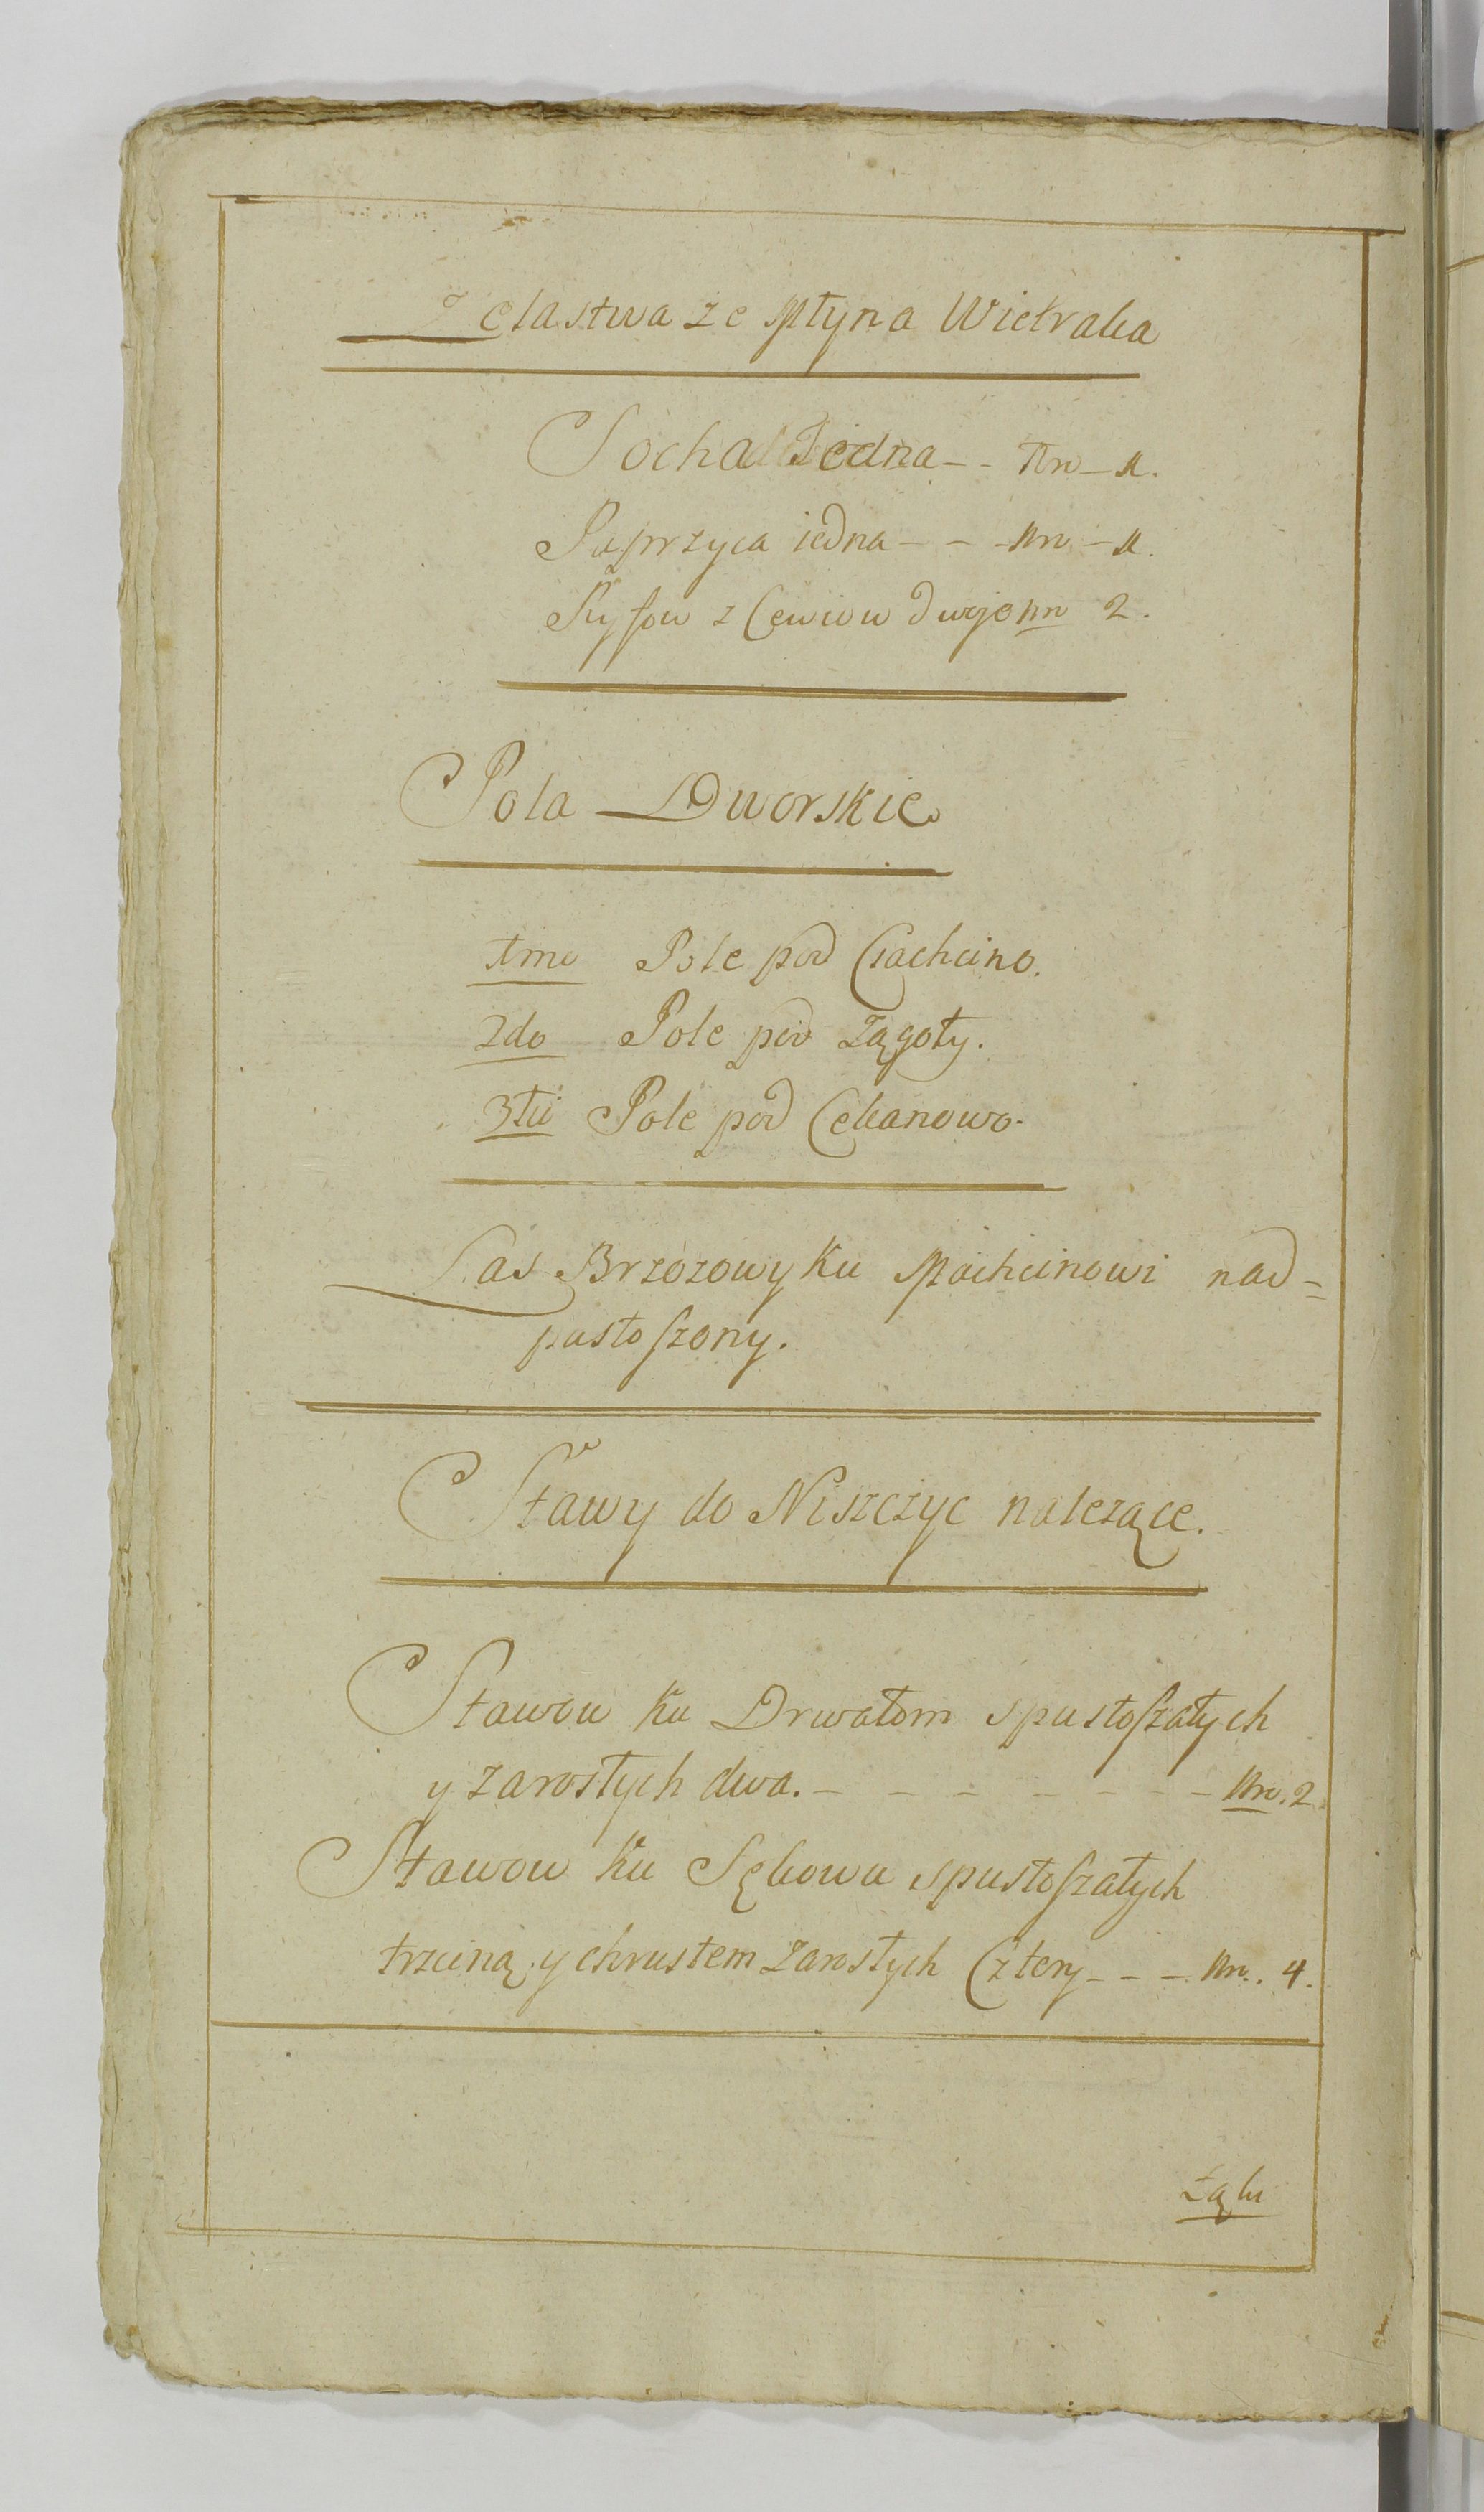 Zelastwa ze Młyna Wietraka
Socha Jedna - - Nro - 1.
Paprzyca iedna - - - Nro - 1.
Ryfow z Cewiow dwoje Nro 2.
Pola Dworskie
1mo Pole pod Ciachcino.
2do Pole pod Zągoty.
3tii Pole pod Cekanowo.
Las Brzozowy Ku Machcinowi nad=
pustoszony.
Stawy do Niszczyc nalezące.
Stawow ku Drwałom spustoszałych
y zarosłych dwa. - - - - - - - Nro. 2
Stawow ku Sękowu spustoszałych
trzciną y chrustem zarosłych Cztery - - - Nro. 4.
Łąki